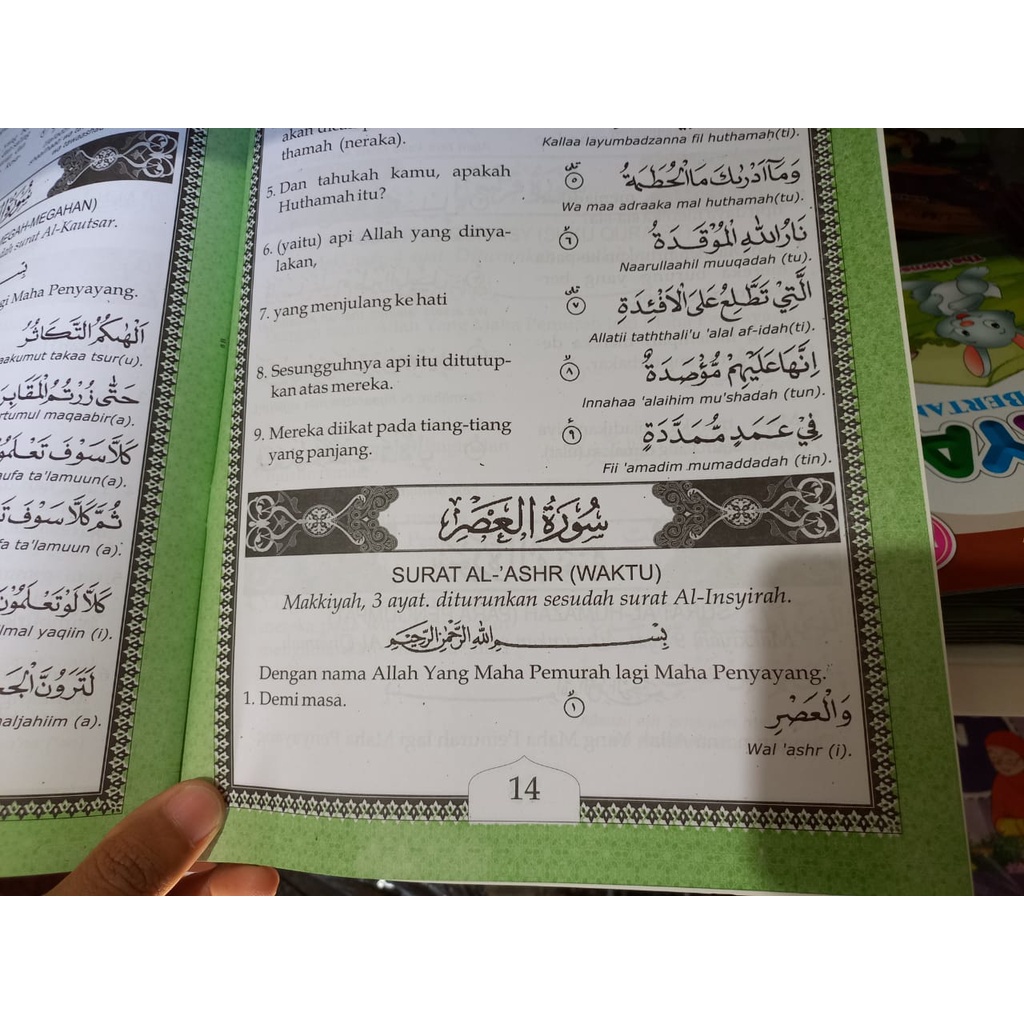 MEGAH-MEGAHAN)
surat Al-Kautsar.
Maha Penyayang.
اَلْهٰىكُمُ التَّكَاثُرُ
takaa tsur(u).
حَتّٰى زُرْتُمُ الْمَقَابِرَ
maqaabir(a).
كَلَّا سَوْفَ تَعْلَمُوْنَ
ta'lamuun(a).
ثُمَّ كَلَّا سَوْفَ
ta'lamuun (a).
كَلَّا لَوْ تَعْلَمُوْنَ
yaqiin (i).
لَتَرَوُنَّ
thamah (neraka).
Kallaa layumbadzanna fil huthamah(ti).
5. Dan tahukah kamu, apakah
Huthamah itu?
وَمَآ اَدْرٰىكَ مَا الْحُطَمَةُ ٥
Wa maa adraaka mal huthamah(tu).
6. (yaitu) api Allah yang dinya-
lakan,
نَارُ اللّٰهِ الْمُوْقَدَةُ ٦
Naarullaahil muuqadah (tu).
7. yang menjulang ke hati
الَّتِيْ تَطَّلِعُ عَلَى الْاَفْئِدَةِ ٧
Allatii taththali'u 'alal af-idah(ti).
8. Sesungguhnya api itu ditutup-
kan atas mereka.
اِنَّهَا عَلَيْهِمْ مُّؤْصَدَةٌ ٨
Innahaa 'alaihim mu'shadah (tun).
9. Mereka diikat pada tiang-tiang
yang panjang.
فِيْ عَمَدٍ مُّمَدَّدَةٍ ٩
Fii 'amadim mumaddadah (tin).
سُوْرَةُ الْعَصْرِ
SURAT AL-'ASHR (WAKTU)
Makkiyah, 3 ayat. diturunkan sesudah surat Al-Insyirah.
بِسْمِ اللّٰهِ الرَّحْمٰنِ الرَّحِيْمِ
Dengan nama Allah Yang Maha Pemurah lagi Maha Penyayang.
1. Demi masa.
وَالْعَصْرِ ١
Wal 'ashr (i).
14